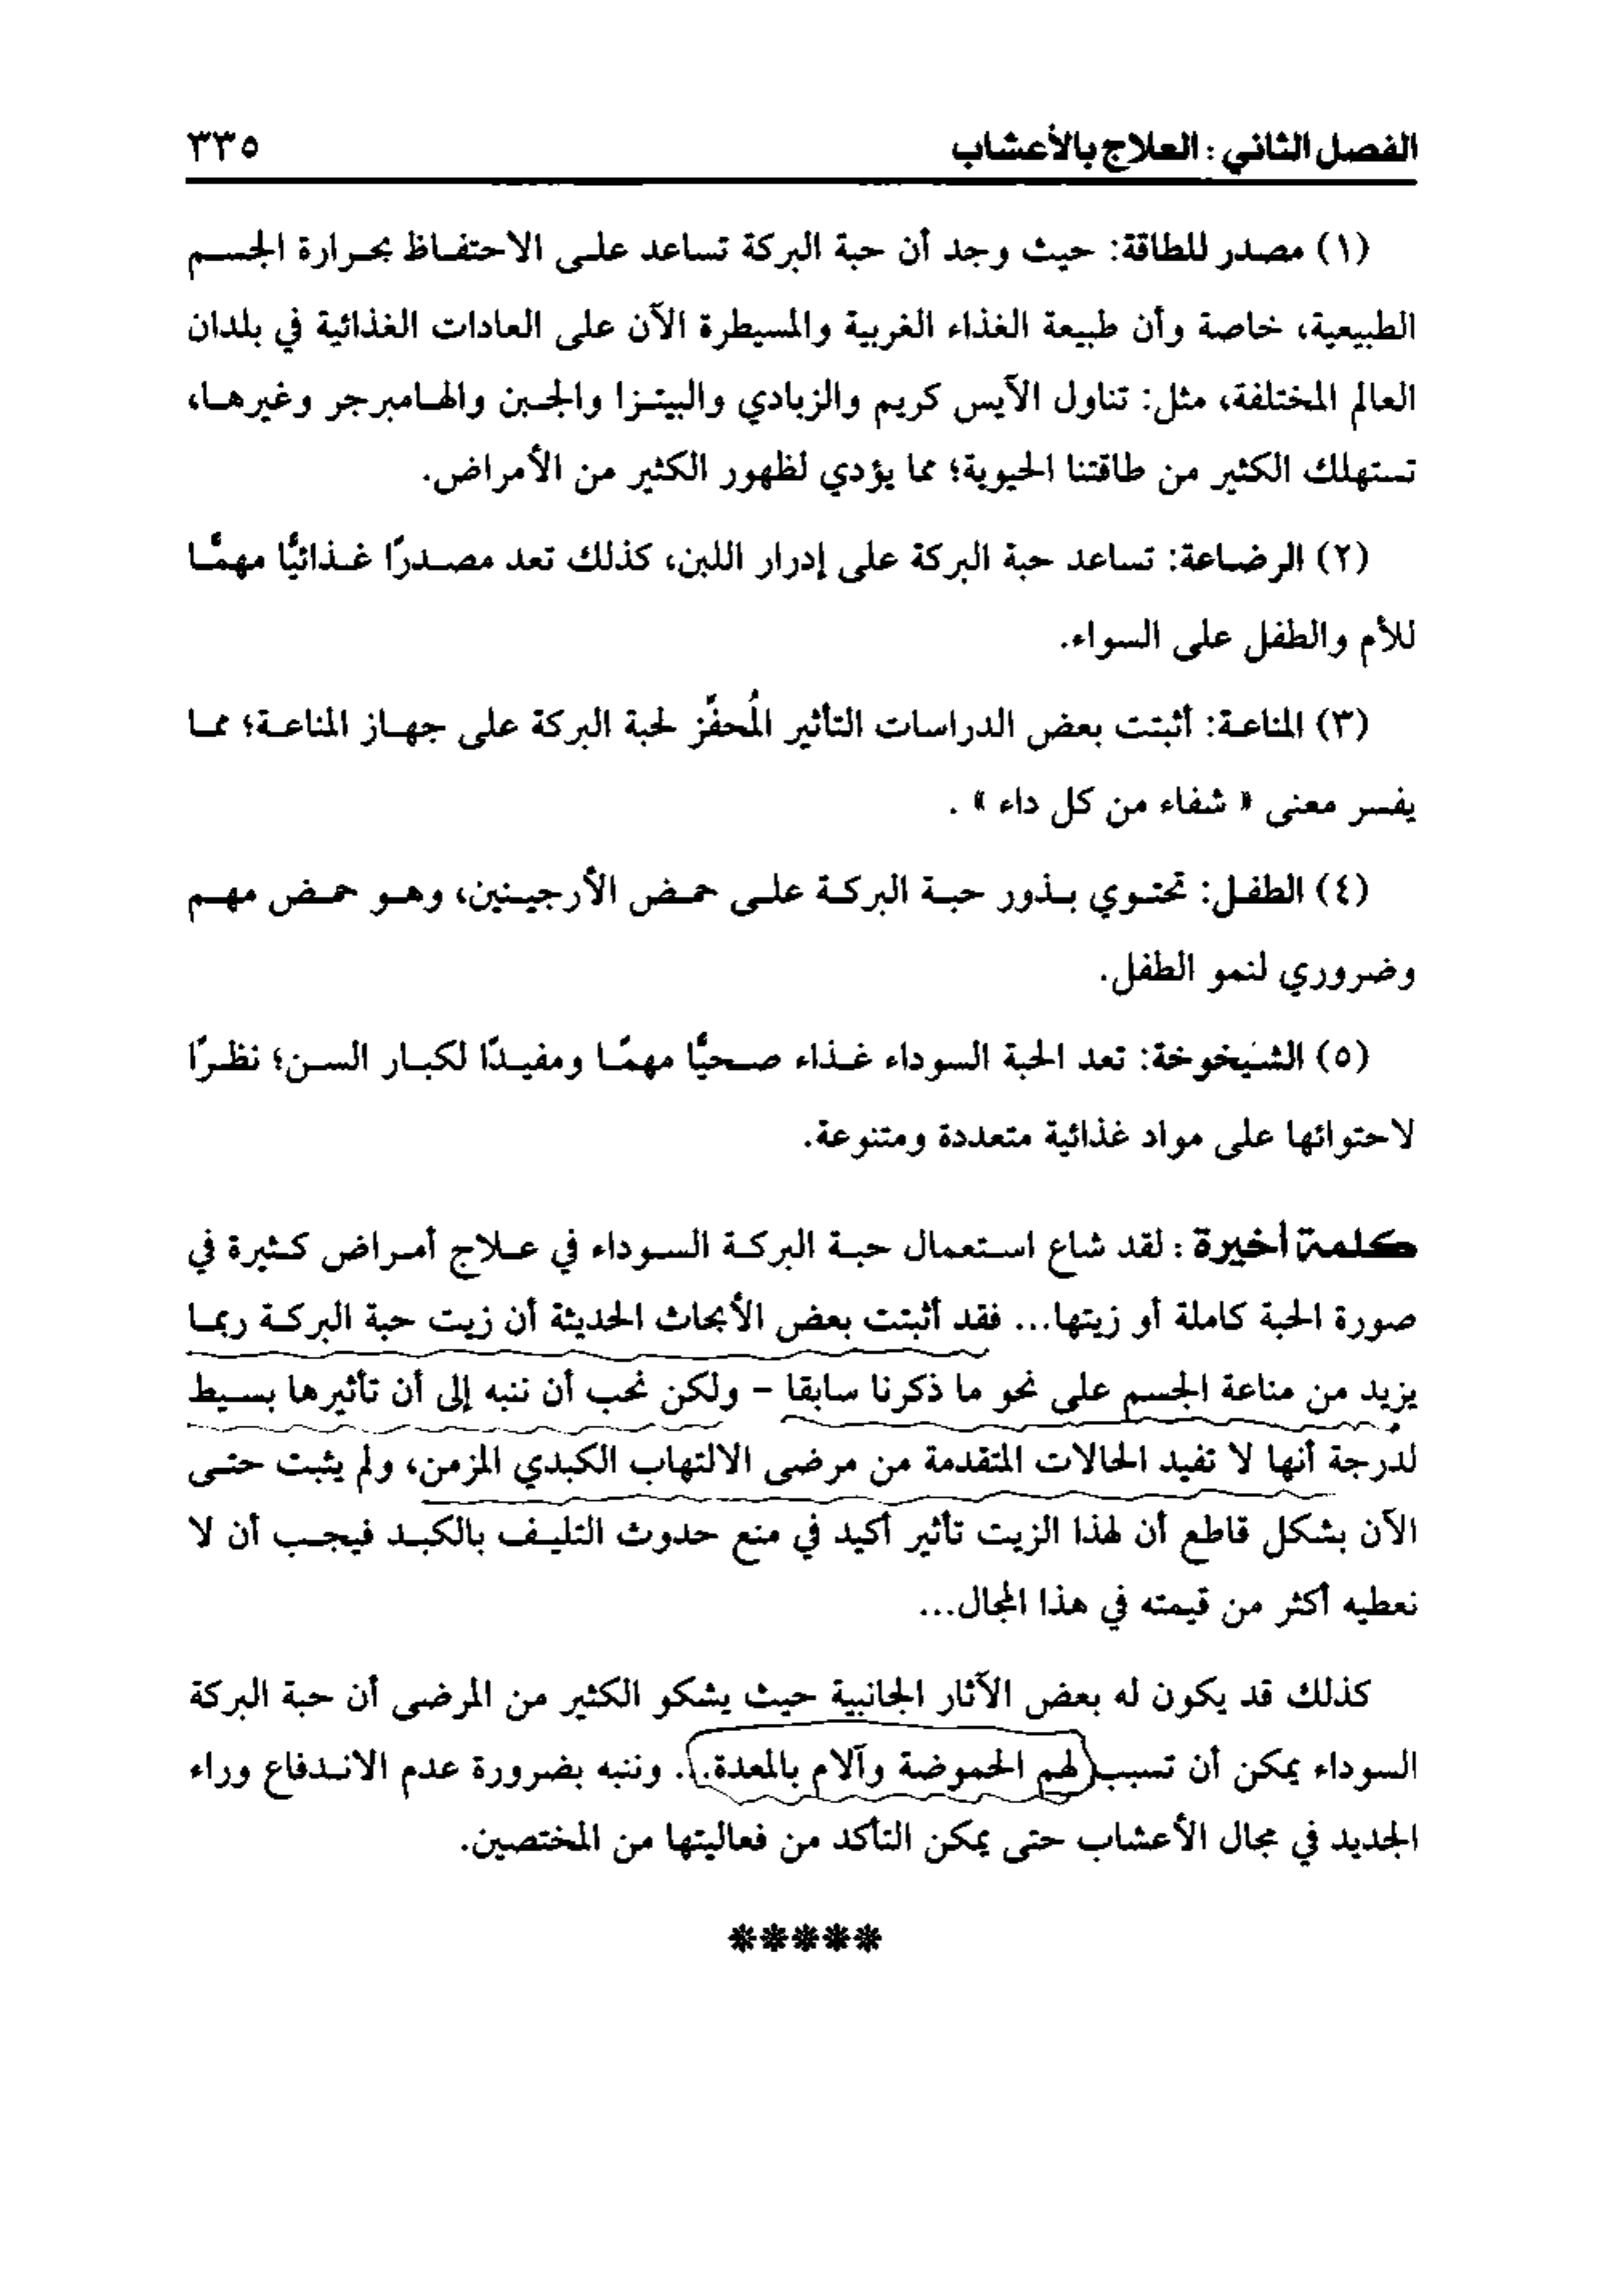 الفصل الثاني : العلاج بالأعشاب ٣٣٥
(١) مصدر للطاقة: حيث وجد أن حبة البركة تساعد على الاحتفاظ بحرارة الجسم
الطبيعية، خاصة وأن طبيعة الغذاء الغربية والمسيطرة الآن على العادات الغذائية في بلدان
العالم المختلفة، مثل: تناول الآيس كريم والزبادي والبيتزا والجبن والهامبرجر وغيرها،
تستهلك الكثير من طاقتنا الحيوية؛ مما يؤدي لظهور الكثير من الأمراض.
(٢) الرضاعة: تساعد حبة البركة على إدرار اللبن، كذلك تعد مصدرًا غذائيًّا مهمًّا
للأم والطفل على السواء.
(٣) المناعة: أثبتت بعض الدراسات التأثير المُحفّز لحبة البركة على جهاز المناعة؛ مما
يفسر معنى « شفاء من كل داء » .
(٤) الطفل: تحتوي بذور حبة البركة على حمض الأرجينين، وهو حمض مهم
وضروري لنمو الطفل.
(٥) الشيَخوخة: تعد الحبة السوداء غذاء صحيًّا مهمًّا ومفيدًا لكبار السن؛ نظرًا
لاحتوائها على مواد غذائية متعددة ومتنوعة.
كلمة أخيرة : لقد شاع استعمال حبة البركة السوداء في علاج أمراض كثيرة في
صورة الحبة كاملة أو زيتها... فقد أثبتت بعض الأبحاث الحديثة أن زيت حبة البركة ربما
يزيد من مناعة الجسم على نحو ما ذكرنا سابقا – ولكن نحب أن ننبه إلى أن تأثيرها بسيط
لدرجة أنها لا تفيد الحالات المتقدمة من مرضى الالتهاب الكبدي المزمن، ولم يثبت حتى
الآن بشكل قاطع أن لهذا الزيت تأثير أكيد في منع حدوث التليف بالكبد فيجب أن لا
نعطيه أكثر من قيمته في هذا المجال...
كذلك قد يكون له بعض الآثار الجانبية حيث يشكو الكثير من المرضى أن حبة البركة
السوداء يمكن أن تسبب لهم الحموضة وآلام بالمعدة... وننبه بضرورة عدم الاندفاع وراء
الجديد في مجال الأعشاب حتى يمكن التأكد من فعاليتها من المختصين.
*****